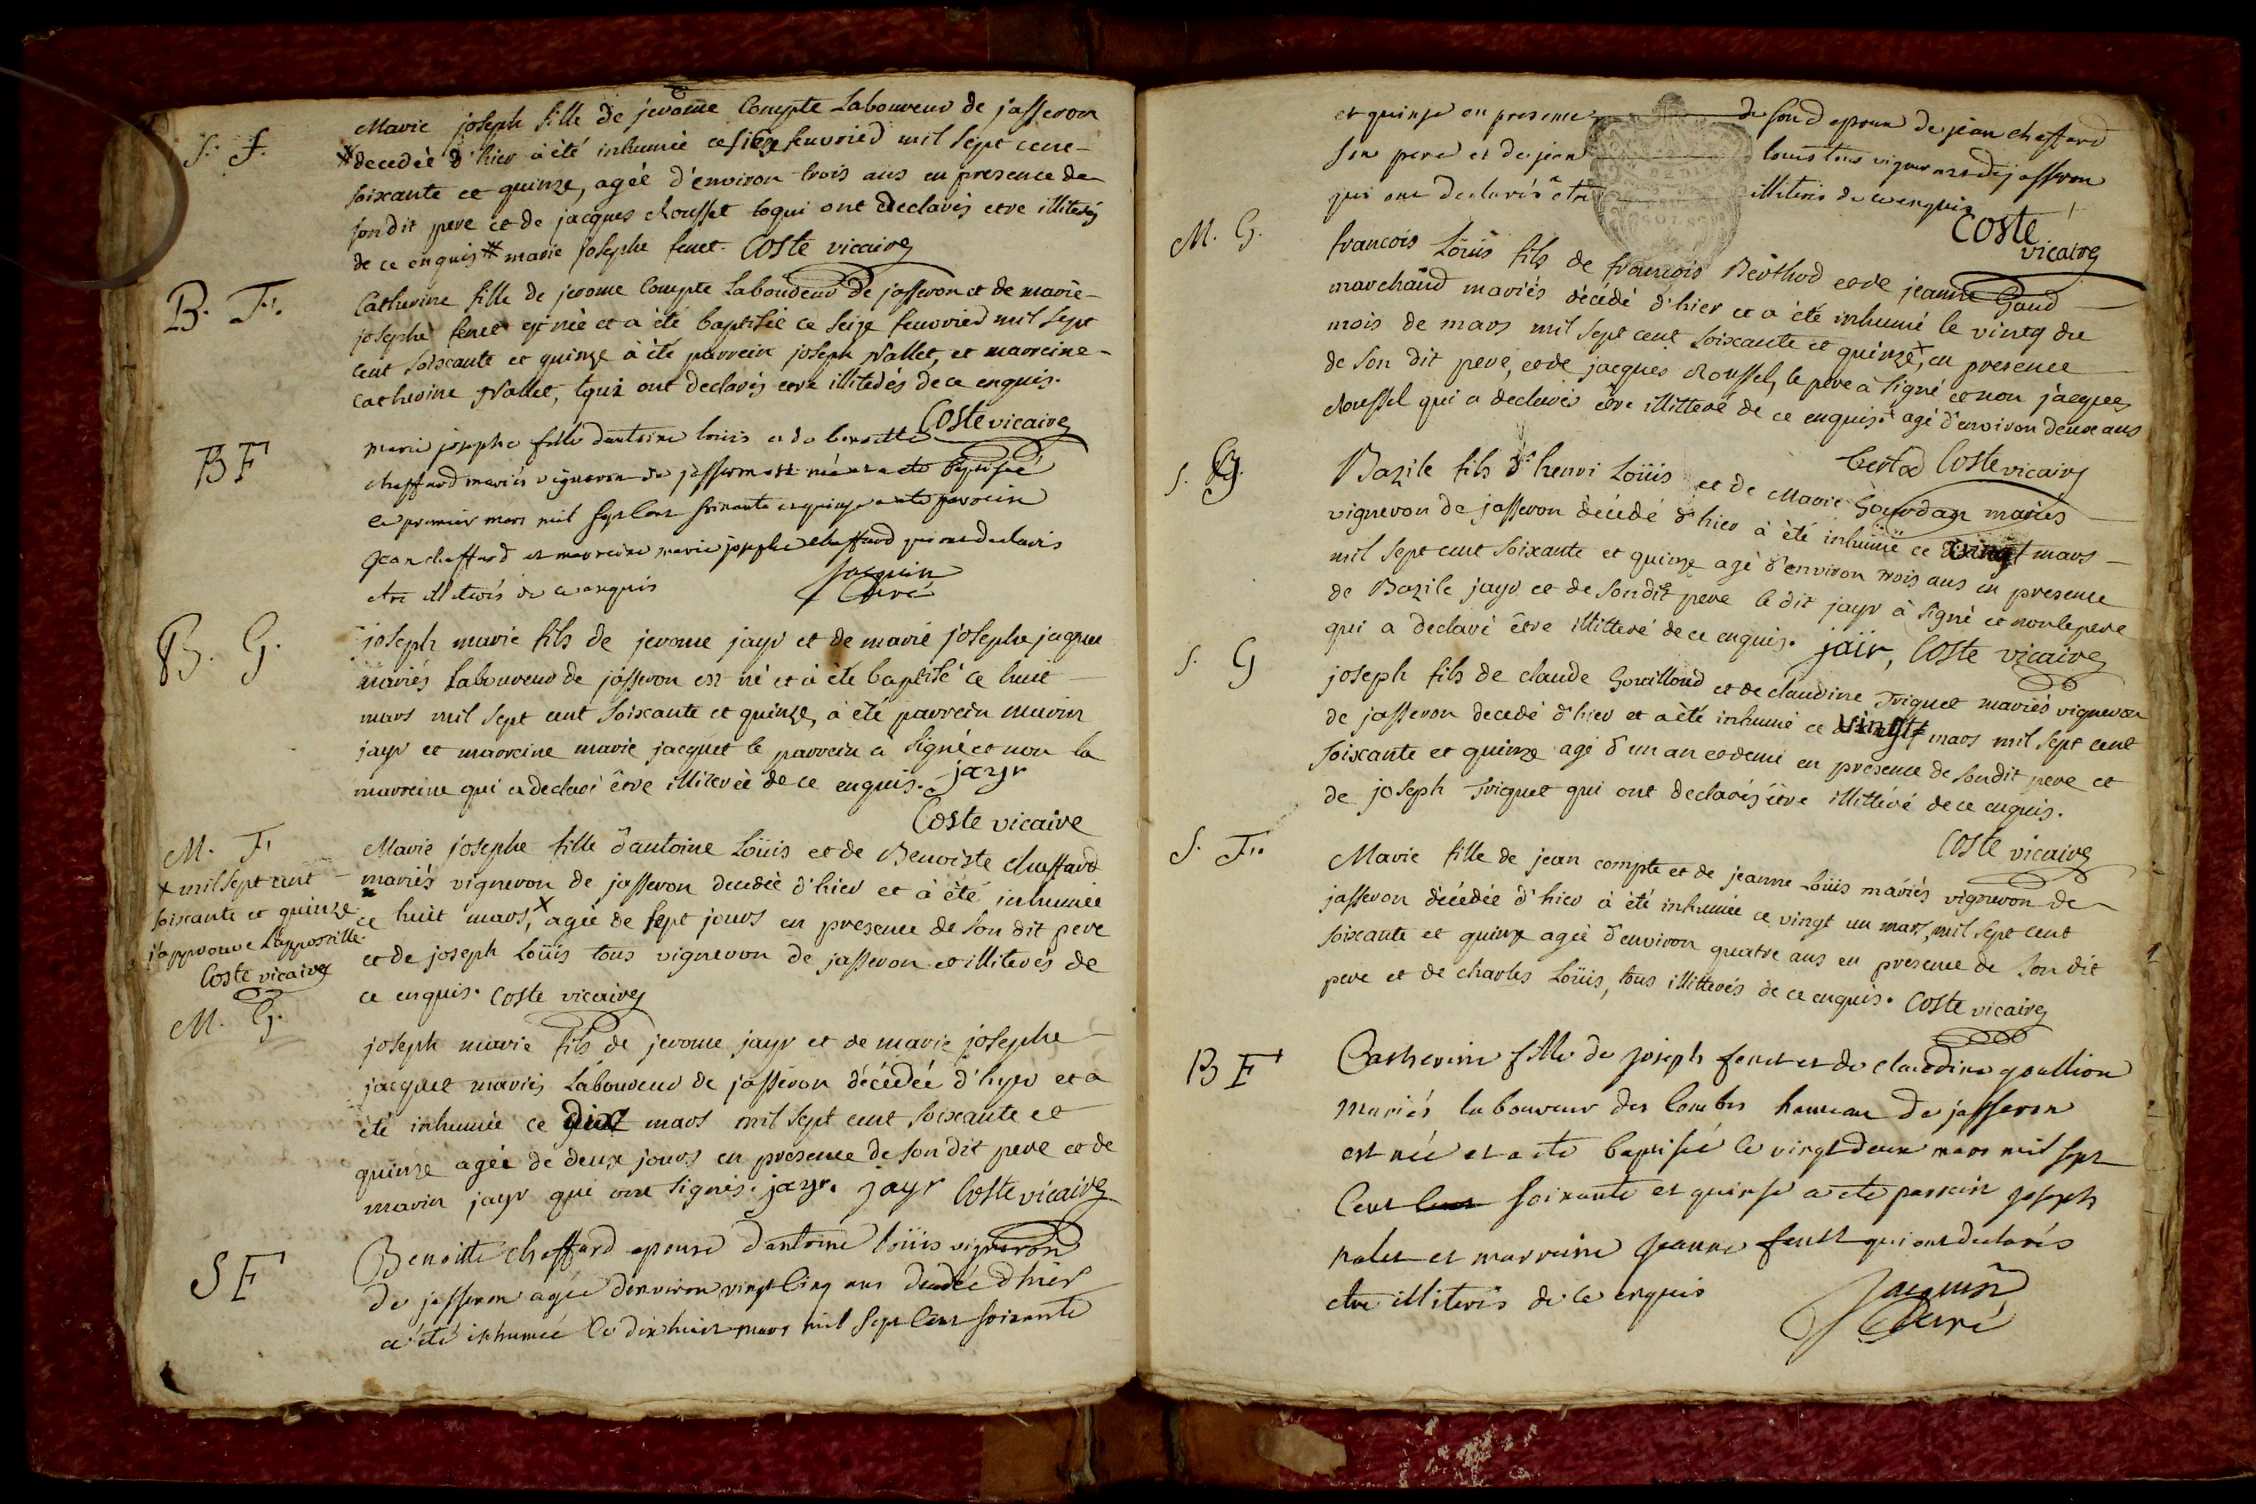 S. f.
Marie joseph fille de jerome Compte Laboureur de jasseron
# decedéé d'hier à été inhumée ce seize feuvrier mil sept cent
soixante et quinze, agéé d'environ trois ans en presence de
son dit pere et de jacques Roussel qui ont declarés etre illiterés
de ce enquis # marie josephe fenet. Coste vicaire
B. F.
Catherine fille de jerome Compte Laboureur de jasseron et de marie
josephe fenet est néé et a été baptiséé ce seize feuvrier mil sept
cent soixante et quinze à été parrein joseph Nallet, et marreine
catherine Nallet, qui ont declarés etre illiterés de ce enquis.
Coste vicaire
BF
marie josephe fille dantoine louis et de benoitte
chaffard mariés vigneron de jasseron est née et a eté baptisée
le premier mars mil sept cent soixante et quinze a eté parrein
Jean chaffard et marreine marie josephe chaffard qui ont declarés
etre illiterés de ce enquis
Jacquin
Curé
B. G.
joseph marie fils de jerome jayr et de marie josephe jacquet
mariés Laboureur de jasseron est né et à été baptisé ce huit
mars mil sept cent soixante et quinze, à été parrein marin
jayr et marreine marie jacquet le parrein a signé et non la
marreine qui a declaré être illiteréé de ce enquis. jayr
Coste vicaire
M. F.
x mil sept cent
soixante et quinze
j'approuve L'appostille
Coste vicaire
Marie josephe fille d'antoine Loüis et de Benoiste chaffard
mariés vigneron de jasseron decedéé d'hier et à été inhumée
ce huit mars, x agéé de sept jours en presence de son dit pere
et de joseph Loüis tous vigneron de jasseron et illiterés de
ce enquis. Coste vicaire
M. G.
joseph marie fils de jerome jayr et de marie josephe
jacquet mariés Laboureur de jasseron décédéé d'hyer et a
été inhumée ce dix mars mil sept cent soixante et
quinze agéé de deux jours en presence de son dit pere et de
marin jayr qui ont signés. jayr. jayr Coste vicaire
SF
Benoitte chaffard epouse dantoine loüis vigneron
de jasseron agée denviron vingt cinq ans decedée dhier
a été inhumée le dix huit mars mil sept cent soixante
et quinze en presence de son d epoux de jean chaffard
son pere et de jean louis tous vignerons de jasseron
qui ont declarés etre illiterés de ce enquis
Coste
vicaire
M. G.
francois Loüis fils de francois Berthod et de jeanne Gaud
marchand mariés décédé d'hier et a été inhumé le vingt du
mois de mars mil sept cent soixante et quinze, x en presence
de son dit pere, et de jacques Roussel, le pere à signé et non jacques
Roussel qui a declaré être illitteré de ce enquis. x agé d'environ deux ans
Bertod Coste vicaire
S. G.
Bazile fils d'henri Loüis et de Marie Gourdan mariés
vigneron de jasseron décédé d'hier à été inhumé ce vingt mars
mil sept cent soixante et quinze agé d'environ trois ans en presence
de Bazile jayr et de son dit pere le dit jayr à signé et non le pere
qui a declaré être illitteré de ce enquis. jaïr, Coste vicaire
S. G
joseph fils de claude Gouilloud et de claudine Triquet mariés vigneron
de jasseron decedé d'hier et a été inhumé ce vingt mars mil sept cent
soixante et quinze agé d'un an et demi en presence de son dit pere et
de joseph Triquet qui ont declarés être illitteré de ce enquis.
Coste vicaire
S. F.
Marie fille de jean compte et de jeanne Loüis mariés vigneron de
jasseron décédéé d'hier à été inhuméé ce vingt un mars, mil sept cent
soixante et quinze agéé d'environ quatre ans en presence de son dit
pere et de charles Loüis, tous illitterés de ce enquis. Coste vicaire
BF
Catherine fille de joseph fenet et de claudine goullion
mariés laboureur des Combes hameau de jasseron
est née et a eté baptisée le vingt deux mars mil sept
Cent soixante et quinse a eté parrein joseph
nalet et marreine Jeanne fenet qui ont declarés
etre illiterés de ce enquis
Jacquin
Curé